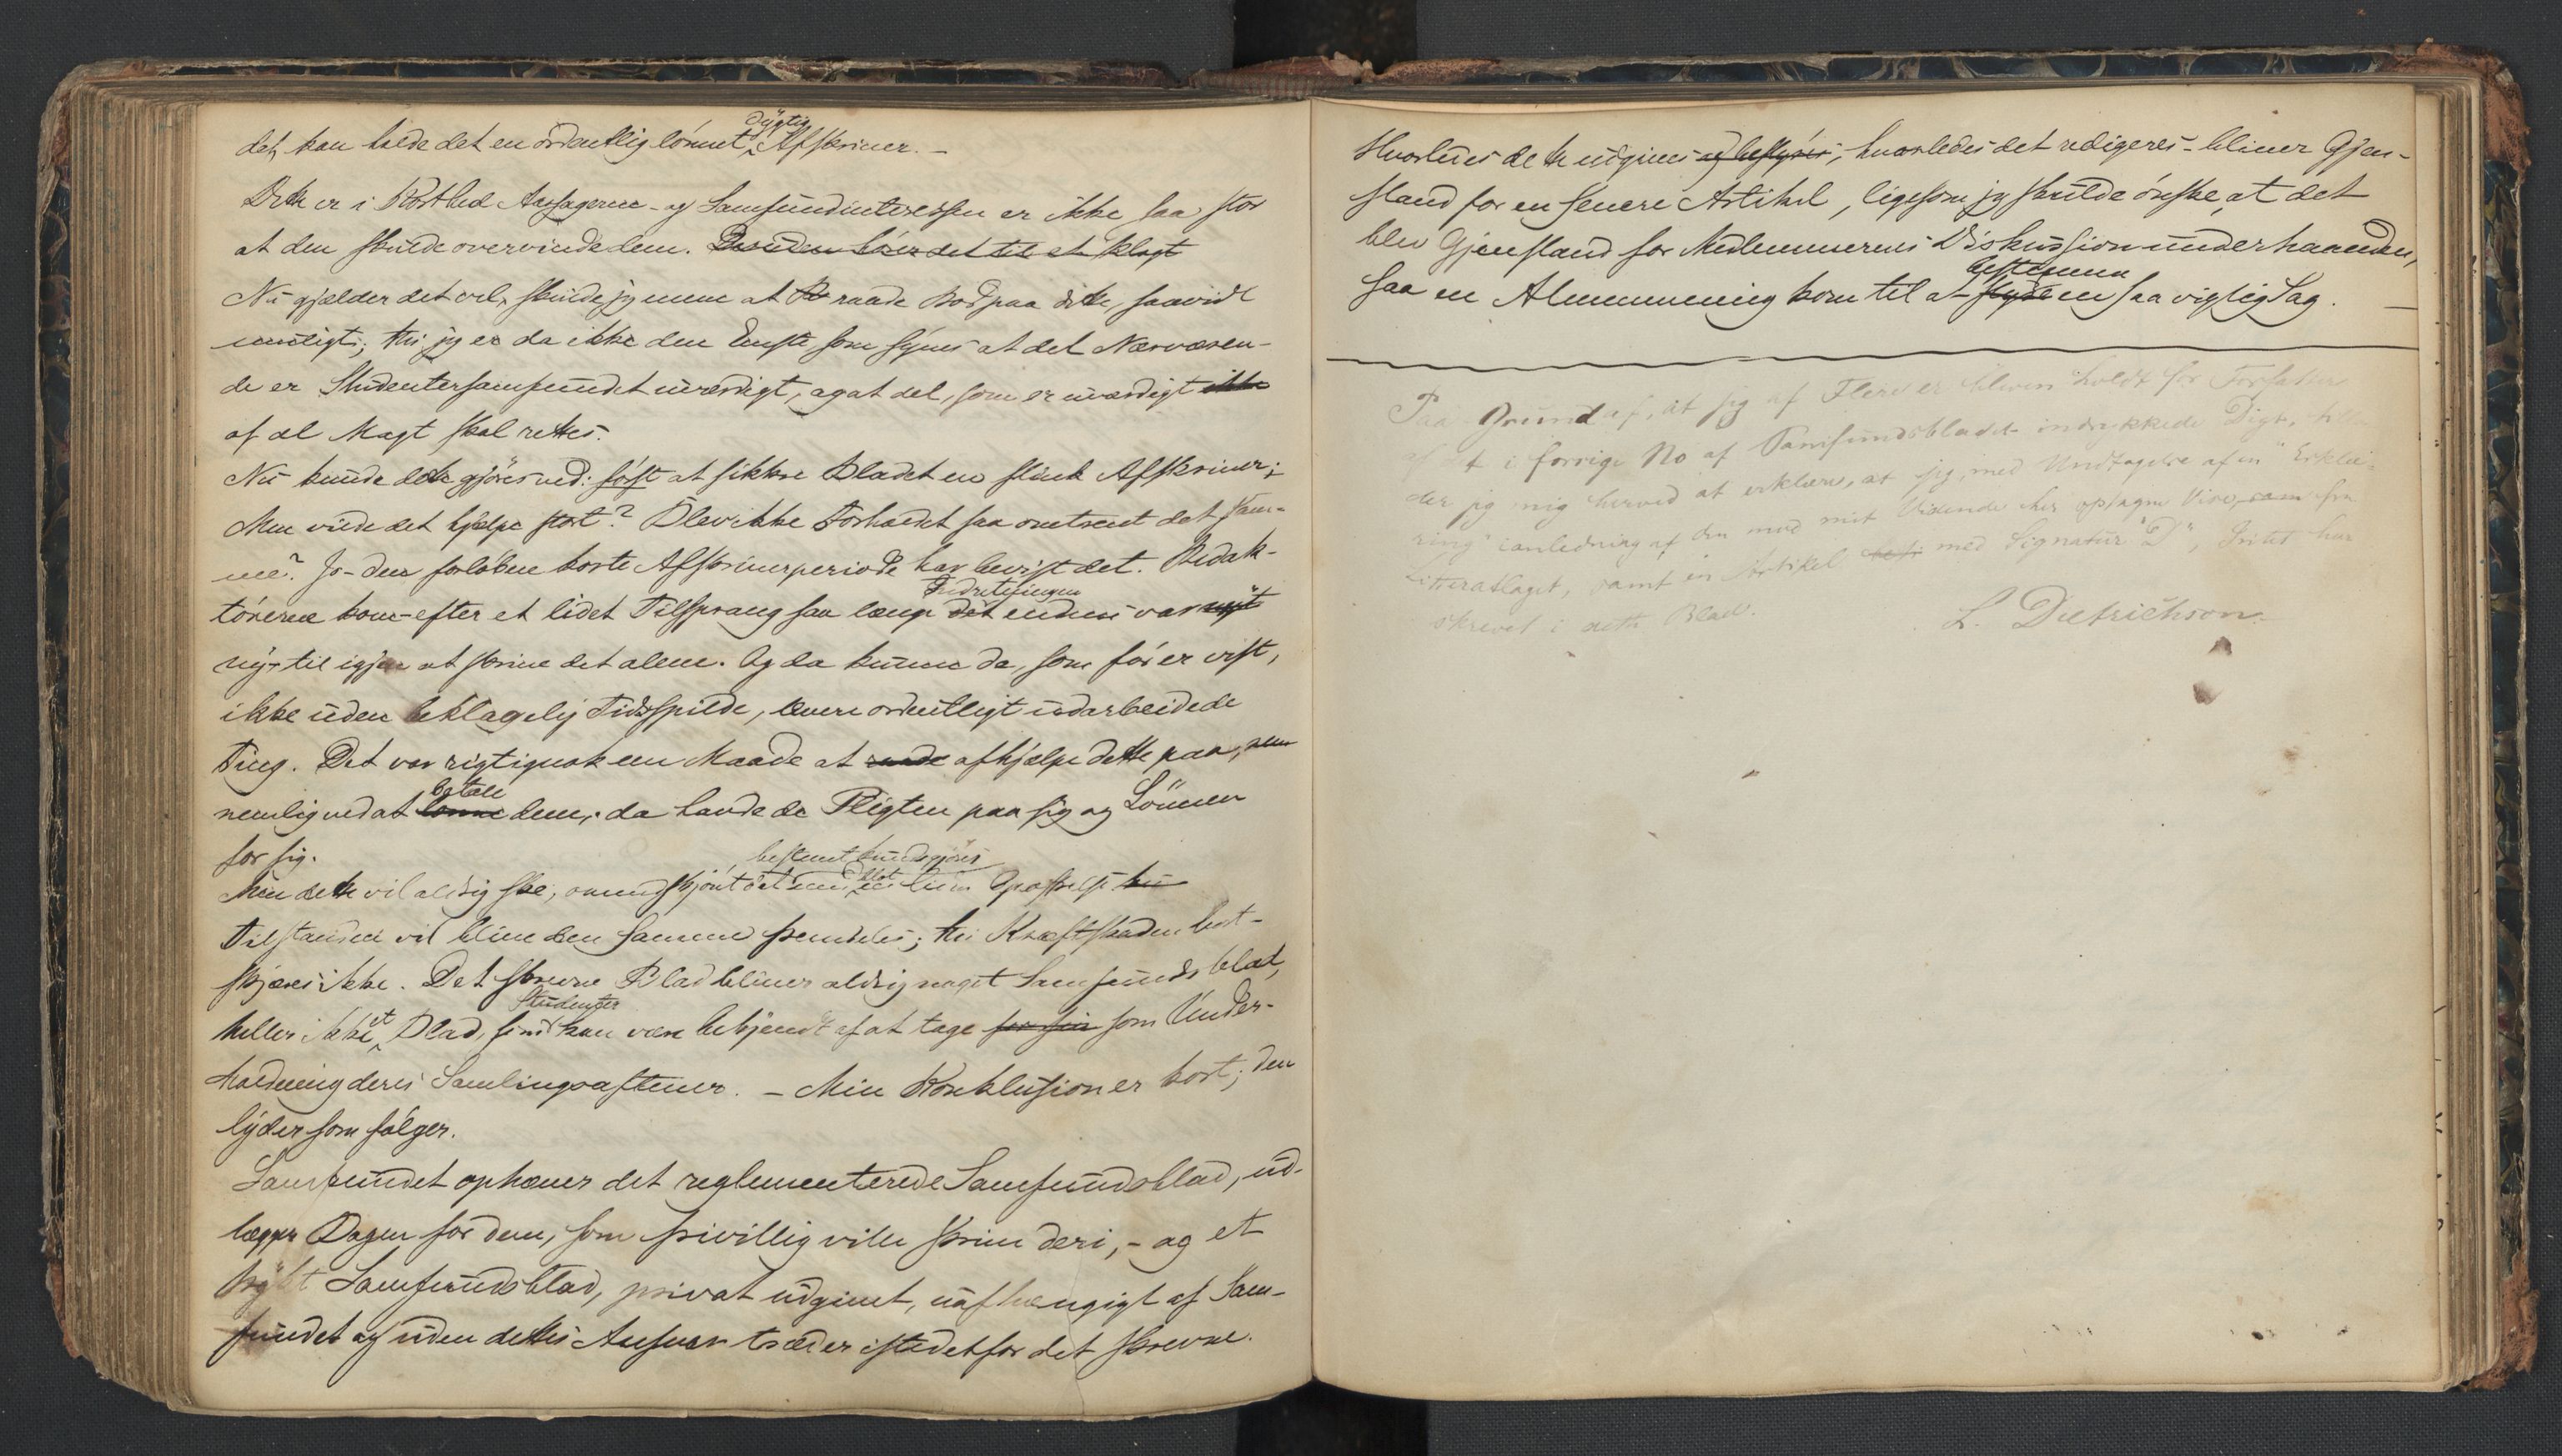 det, kan holde det en ordentlig lönnet dygtig Afskriver. —
Dette er i Korthed Aarsagerne - og Samfundsinteressen er ikke saa stor
at den skulde overvinde dem. Desuden hører det til et slagt
Nu gjælder det vel, skulde jeg mene at raade Bod paa dette, saavidt
muligt; thi jeg er da ikke den Eneste som synes at det Nærværen-
de er Studentersamfundet uværdigt, og at det, som er uværdigt ikke
af al Magt skal rettes.
Nu kunde dette gjöres ved: först at sikkre Bladet en flink Afskriver;
Men vilde det hjelpe stort? Blev ikke Forholdet saa omtrent det Sam-
me? Jo - den forløbne korte Afskriverperiode har bevist det. Redak-
törerne kom - efter et lidet Tilsprang saa længe det Indretningen endnu var nyt
ny, - til igjen at skrive det alene. Og da kunne de, som för er vist,
ikke uden beklagelig Tidsspilde, levere ordentligt udarbeidede
Ting. Det var rigtignok een Maade at raade afhjælpe dette paa,
nemlig ved at lönne betale dem; da havde de Pligten paa sig og Lönnen
for sig.
Men dette vil aldrig ske, omendskjönt det bestemt kundgjöres
Tilstanden vil blive den samme fremdeles; thi Kræftskaden bort-
skjæres ikke. Det skrevne Blad bliver aldrig noget Samfundsblad,
heller ikke et Blad, Studenter kan være bekjendt af at tage for sin som Under-
holdning deres Samlingsaftener. — Min Konklusion er kort; den
lyder som fölger.
Samfundet ophæver det reglementerede Samfundsblad, ud-
lægger Bogen for dem, som frivillig ville skrive deri, - og et
trykt Samfundsblad, privat udgivet, uafhængigt af Sam-
fundet og uden dettes Ansvar træder istedetfor det skrevne.
Hvorledes dette udgives og bestyres, hvorledes det redigeres - bliver Gjen-
stand for en senere Artikel, ligesom jeg skulde önske, at det
blev Gjenstand for Medlemmernes Diskussion underhaanden,
saa en Almeenmening kom til at styre bestemme en saa vigtig Sag. —
Paa Grund af, at jeg af Flere er bleven holdt for Forfatter
af et i forrige No af Samfundsbladet indrykkede Digt,
der jeg mig herved at erklære, at jeg, med Undtagelse af en "Erklæ-
ring" i anledning af den mod mit Vidende her optagne Vise, fra
Litteratlaget, samt en Artikel med Signatur "D", Intet har
skrevet i dette Blad.
L. Dietrichson.